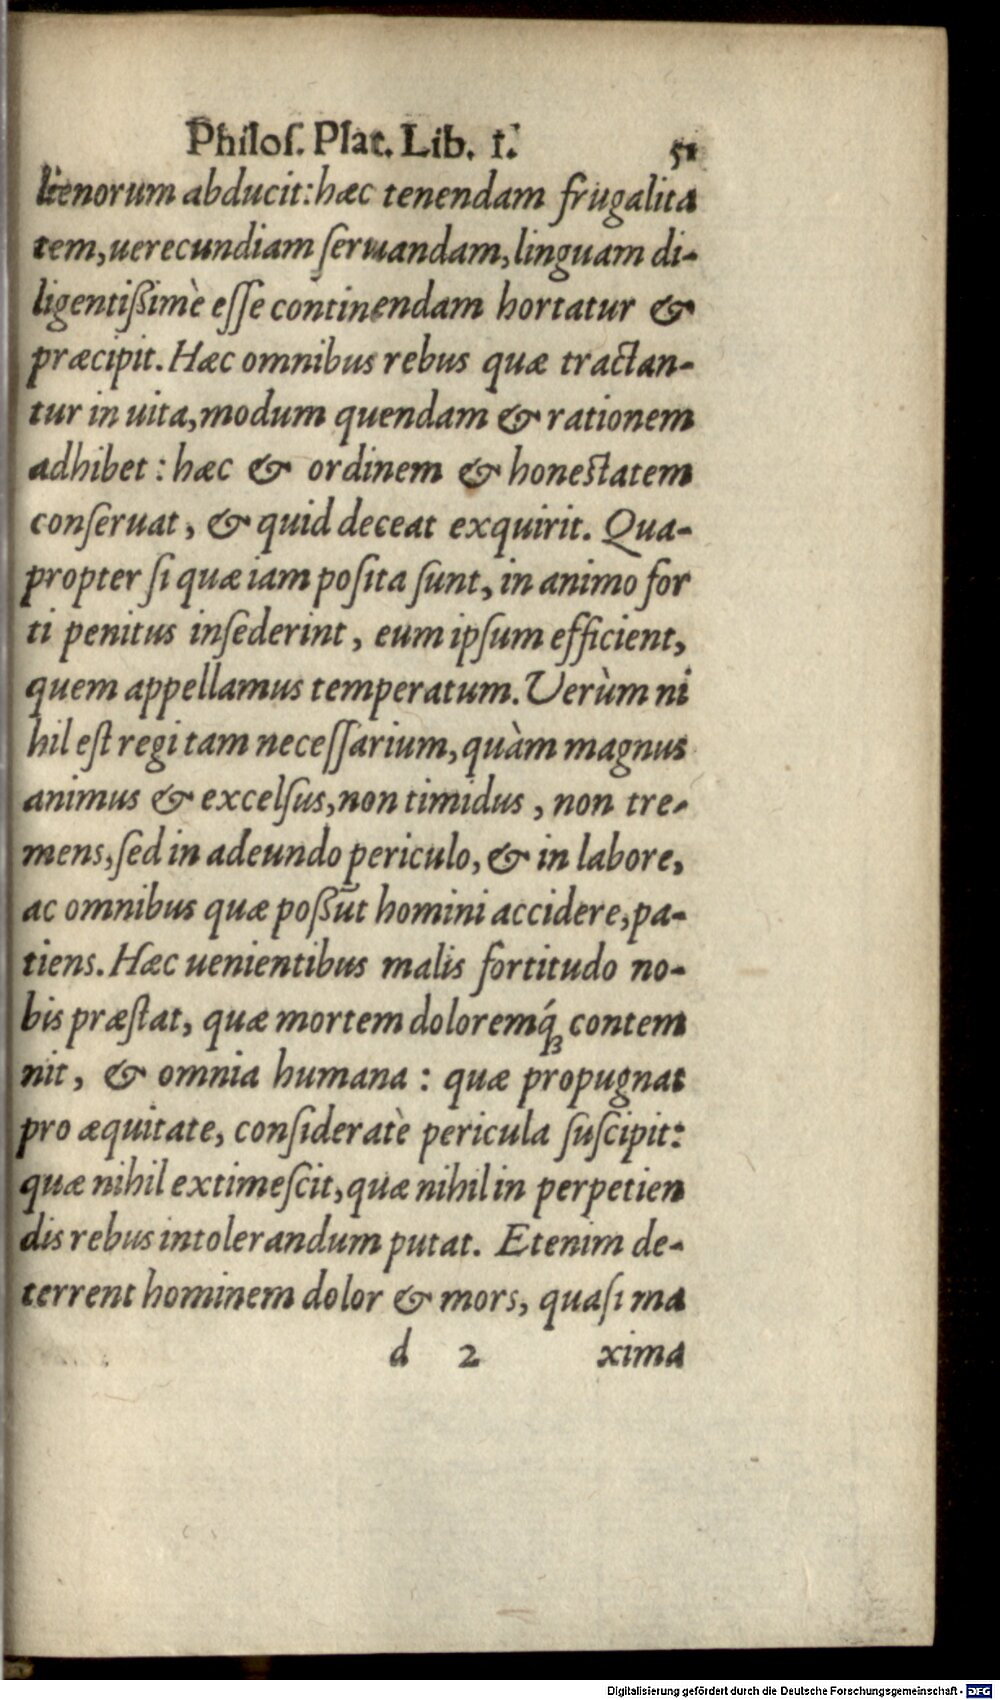 Philoſ. Plat. Lib. I. 51
lienorum abducit: hæc tenendam frugalita
tem, uerecundiam ſeruandam, linguam di-
ligentißimè eſſe continendam hortatur &
præcipit. Hæc omnibus rebus quæ tractan-
tur in uita, modum quendam & rationem
adhibet : hæc & ordinem & honestatem
conſeruat, & quid deceat exquirit. Qua-
propter ſi quæ iam poſita ſunt, in animo for
ti penitus inſederint, eum ipſum efficient,
quem appellamus temperatum. Uerùm ni
hil eſt regi tam neceſſarium, quàm magnus
animus & excelſus, non timidus, non tre-
mens, ſed in adeundo periculo, & in labore,
ac omnibus quæ poßūt homini accidere, pa-
tiens. Hæc uenientibus malis fortitudo no-
bis præſtat, quæ mortem doloremq́ꝫ contem
nit, & omnia humana : quæ propugnat
pro æquitate, conſideratè pericula ſuſcipit:
quæ nihil extimeſcit, quæ nihil in perpetien
dis rebus intolerandum putat. Etenim de-
terrent hominem dolor & mors, quaſi ma
d 2 xima
Digitalisierung gefördert durch die Deutsche Forschungsgemeinschaft - DFG